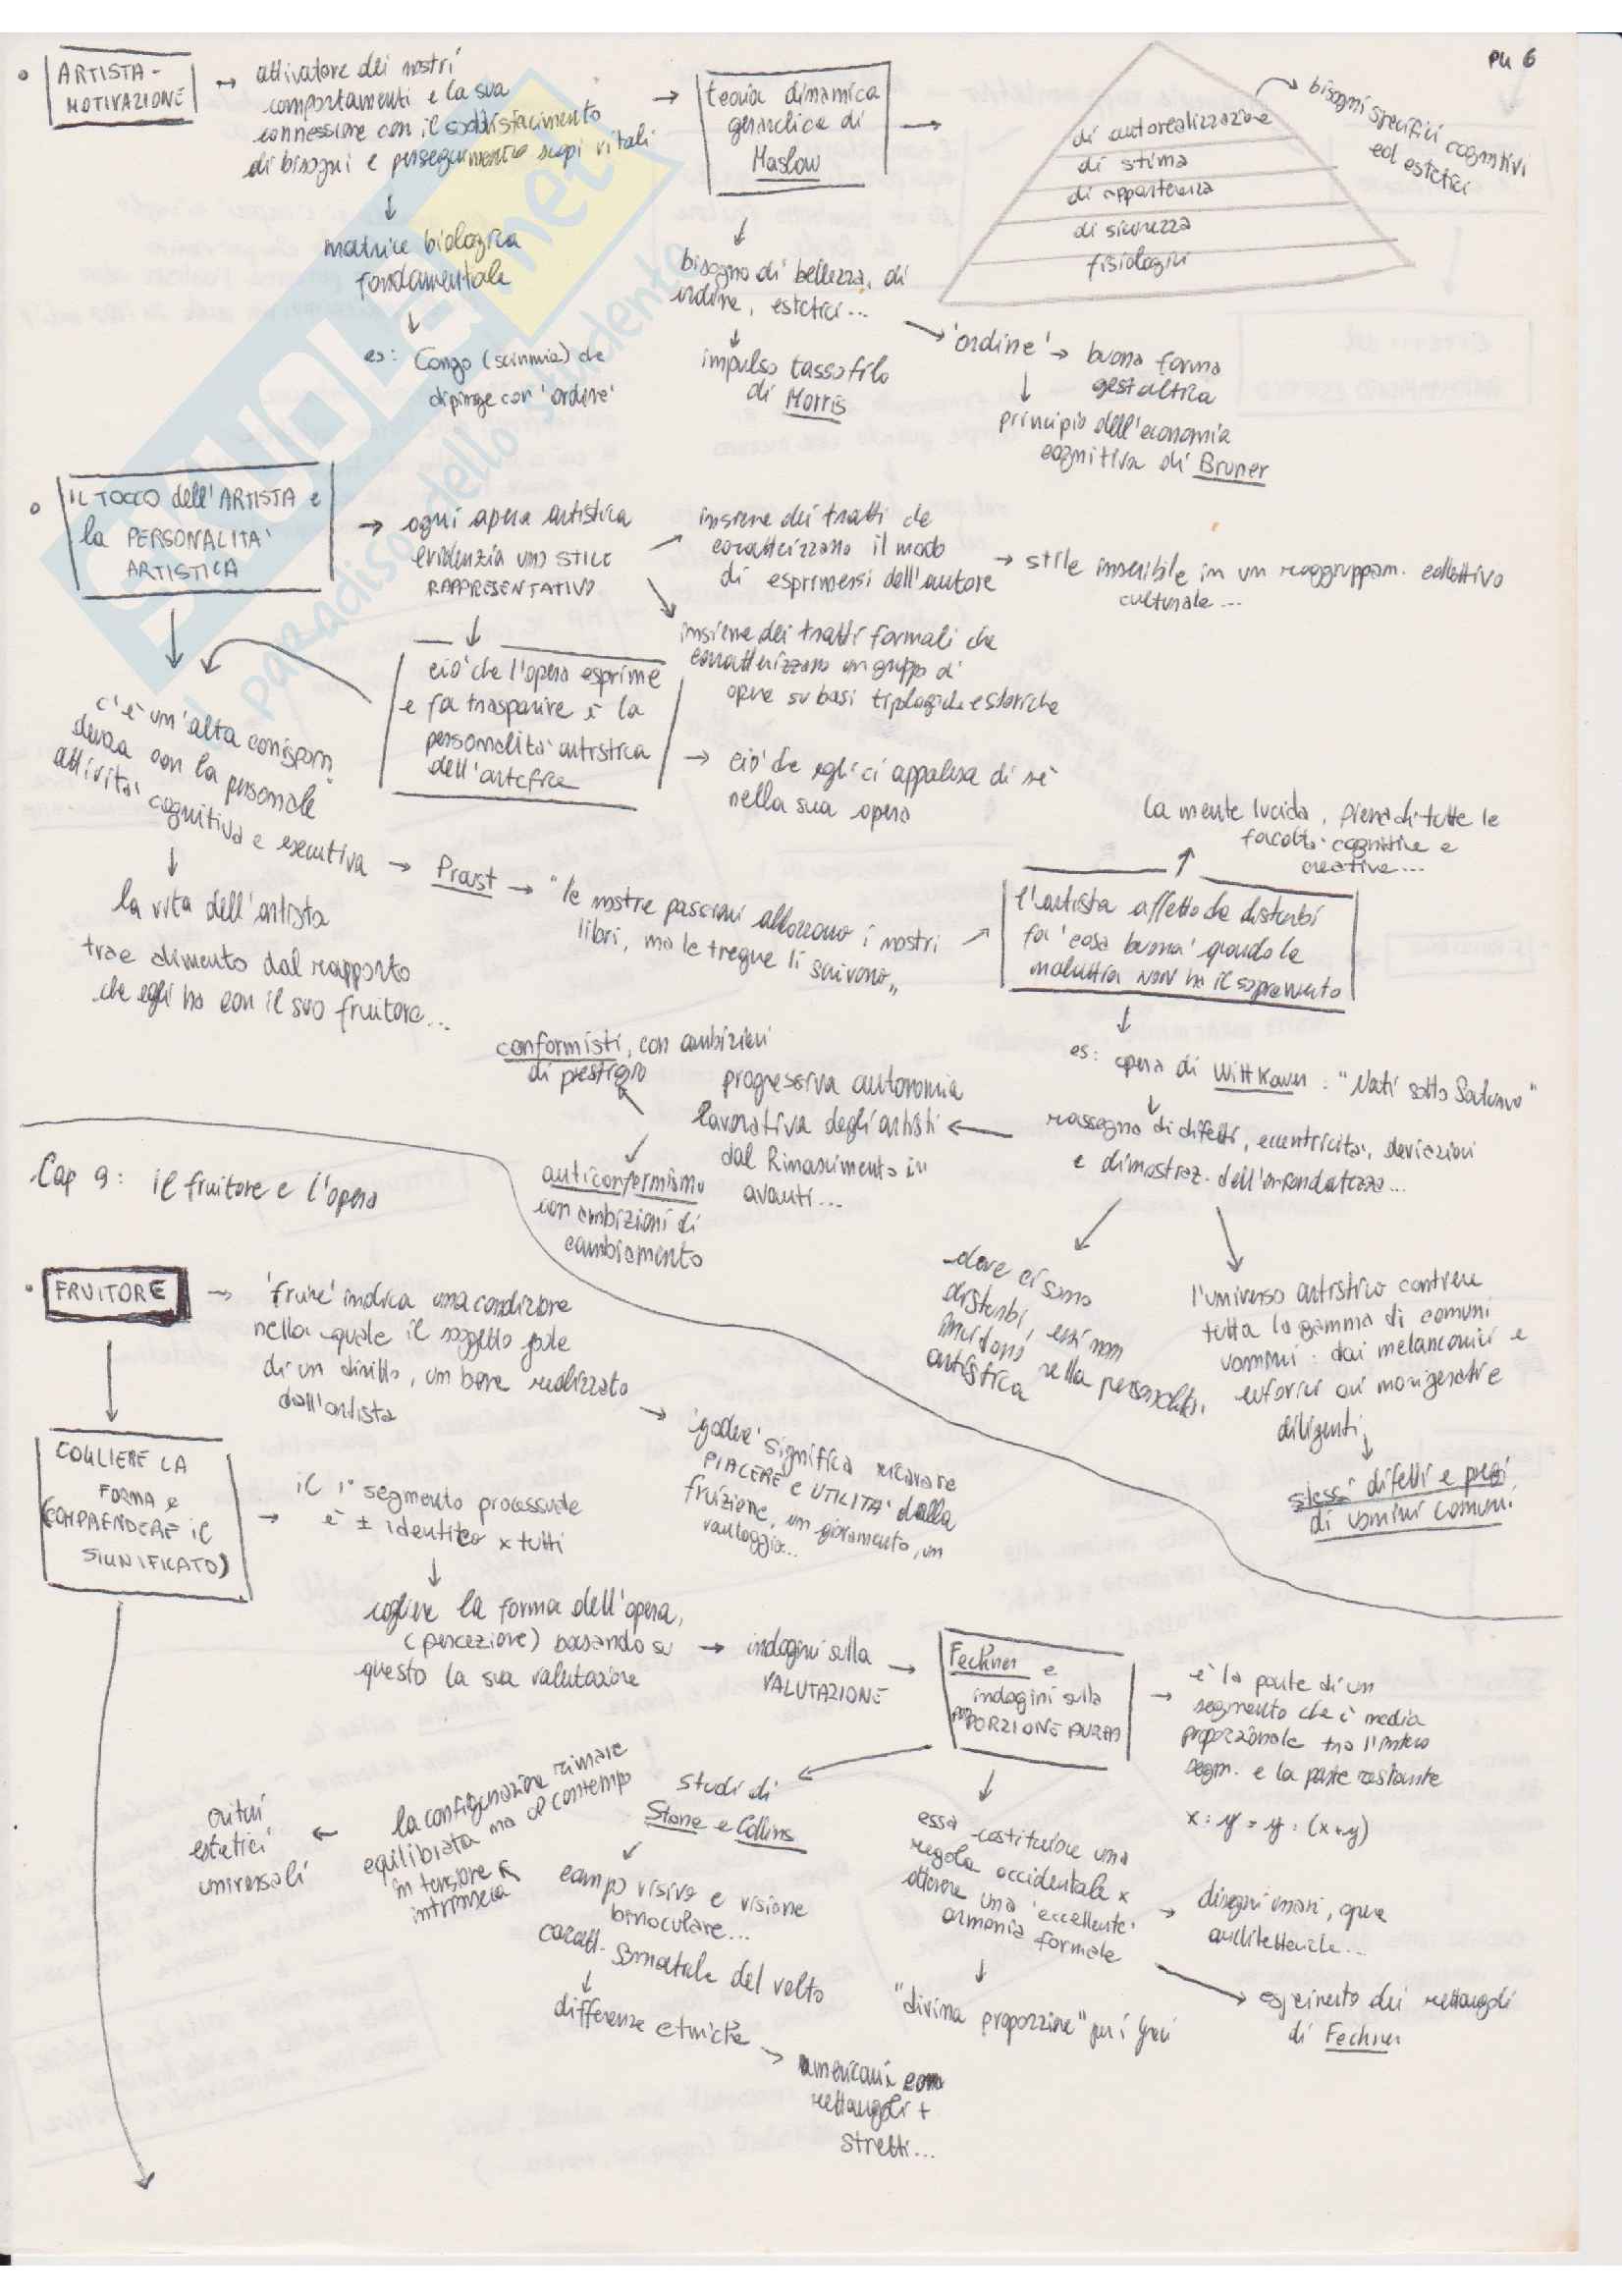 pag 6
ARTISTA -
MOTIVAZIONE
attivatore dei nostri
comportamenti e la sua
connessione con il soddisfacimento
di bisogni e perseguimento scopi vitali
matrice biologica
fondamentale
es: Congo (scimmia) che
dipinge con 'ordine'
teoria dinamica
gerarchica di
Maslow
di autorealizzazione
di stima
di appartenenza
di sicurezza
fisiologici
bisogni specifici cognitivi
ed estetici
bisogno di bellezza, di
ordine, estetici...
impulso tassofilo
di Morris
'ordine' → buona forma
gestaltica
principio dell'economia
cognitiva di Bruner
IL TOCCO dell'ARTISTA e
la PERSONALITA'
ARTISTICA
ogni opera artistica
evidenzia uno STILE
RAPPRESENTATIVO
insieme dei tratti che
caratterizzano il modo
di esprimersi dell'autore
stile inseribile in un raggruppam. collettivo
culturale...
insieme dei tratti formali che
caratterizzano un gruppo di
opere su basi tipologiche e storiche
ciò che l'opera esprime
e fa trasparire è la
personalità artistica
dell'artefice
ciò che egli ci appalesa di sè
nella sua opera
c'è un'alta corrispon-
denza con la personale
attività cognitiva e esecutiva
la vita dell'artista
trae alimento dal rapporto
che egli ha con il suo fruitore...
Proust → "le nostre passioni abbozzano i nostri
libri, ma le tregue li scrivono"
l'artista affetto da disturbi
fa 'cosa buona' quando la
malattia NON ha il sopravvento
la mente lucida, piena di tutte le
facoltà cognitive e
creative...
es: opera di Wittkower: "Nati sotto Saturno"
rassegna di difetti, eccentricità, deviazioni
e dimostraz. dell'infondatezza...
progressiva autonomia
lavorativa degli artisti
dal Rinascimento in
avanti...
conformisti, con ambizioni
di prestigio
anticonformismo
con ambizioni di
cambiamento
dove ci sono
disturbi, essi non
incidono nella personalità
artistica
l'universo artistico contiene
tutta la gamma di comuni
uomini: dai melanconici e
euforici ai morigerati e
diligenti
stessi difetti e pregi
di uomini comuni
Cap 9: il fruitore e l'opera
FRUITORE
'fruire' indica una condizione
nella quale il soggetto gode
di un diritto, un bene realizzato
dall'artista
'godere' significa ricavare
PIACERE e UTILITA' dalla
fruizione, un giovamento, un
vantaggio...
COGLIERE LA
FORMA e
(COMPRENDERE il
SIGNIFICATO)
il 1° segmento processuale
è ± identico x tutti
cogliere la forma dell'opera,
(percezione) basando su
questo la sua valutazione
indagini sulla
VALUTAZIONE
Fechner e
indagini sulla
PROPORZIONE AUREA
è la parte di un
segmento che è media
proporzionale tra l'intero
segm. e la parte restante
x : y = y : (x+y)
studi di
Stone e Collins
campo visivo e visione
binoculare...
caratt. somatiche del volto
differenze etniche
americani con
rettangoli +
stretti...
la configurazione rimane
equilibrata ma al contempo
in tensione
intrinseca
criteri
estetici
universali
essa costituisce una
regola occidentale x
ottenere una 'eccellente'
armonia formale
"divina proporzione" per i Greci
disegni umani, opere
architettoniche...
esperimento dei rettangoli
di Fechner
SKUOLA.net
il paradiso dello studente